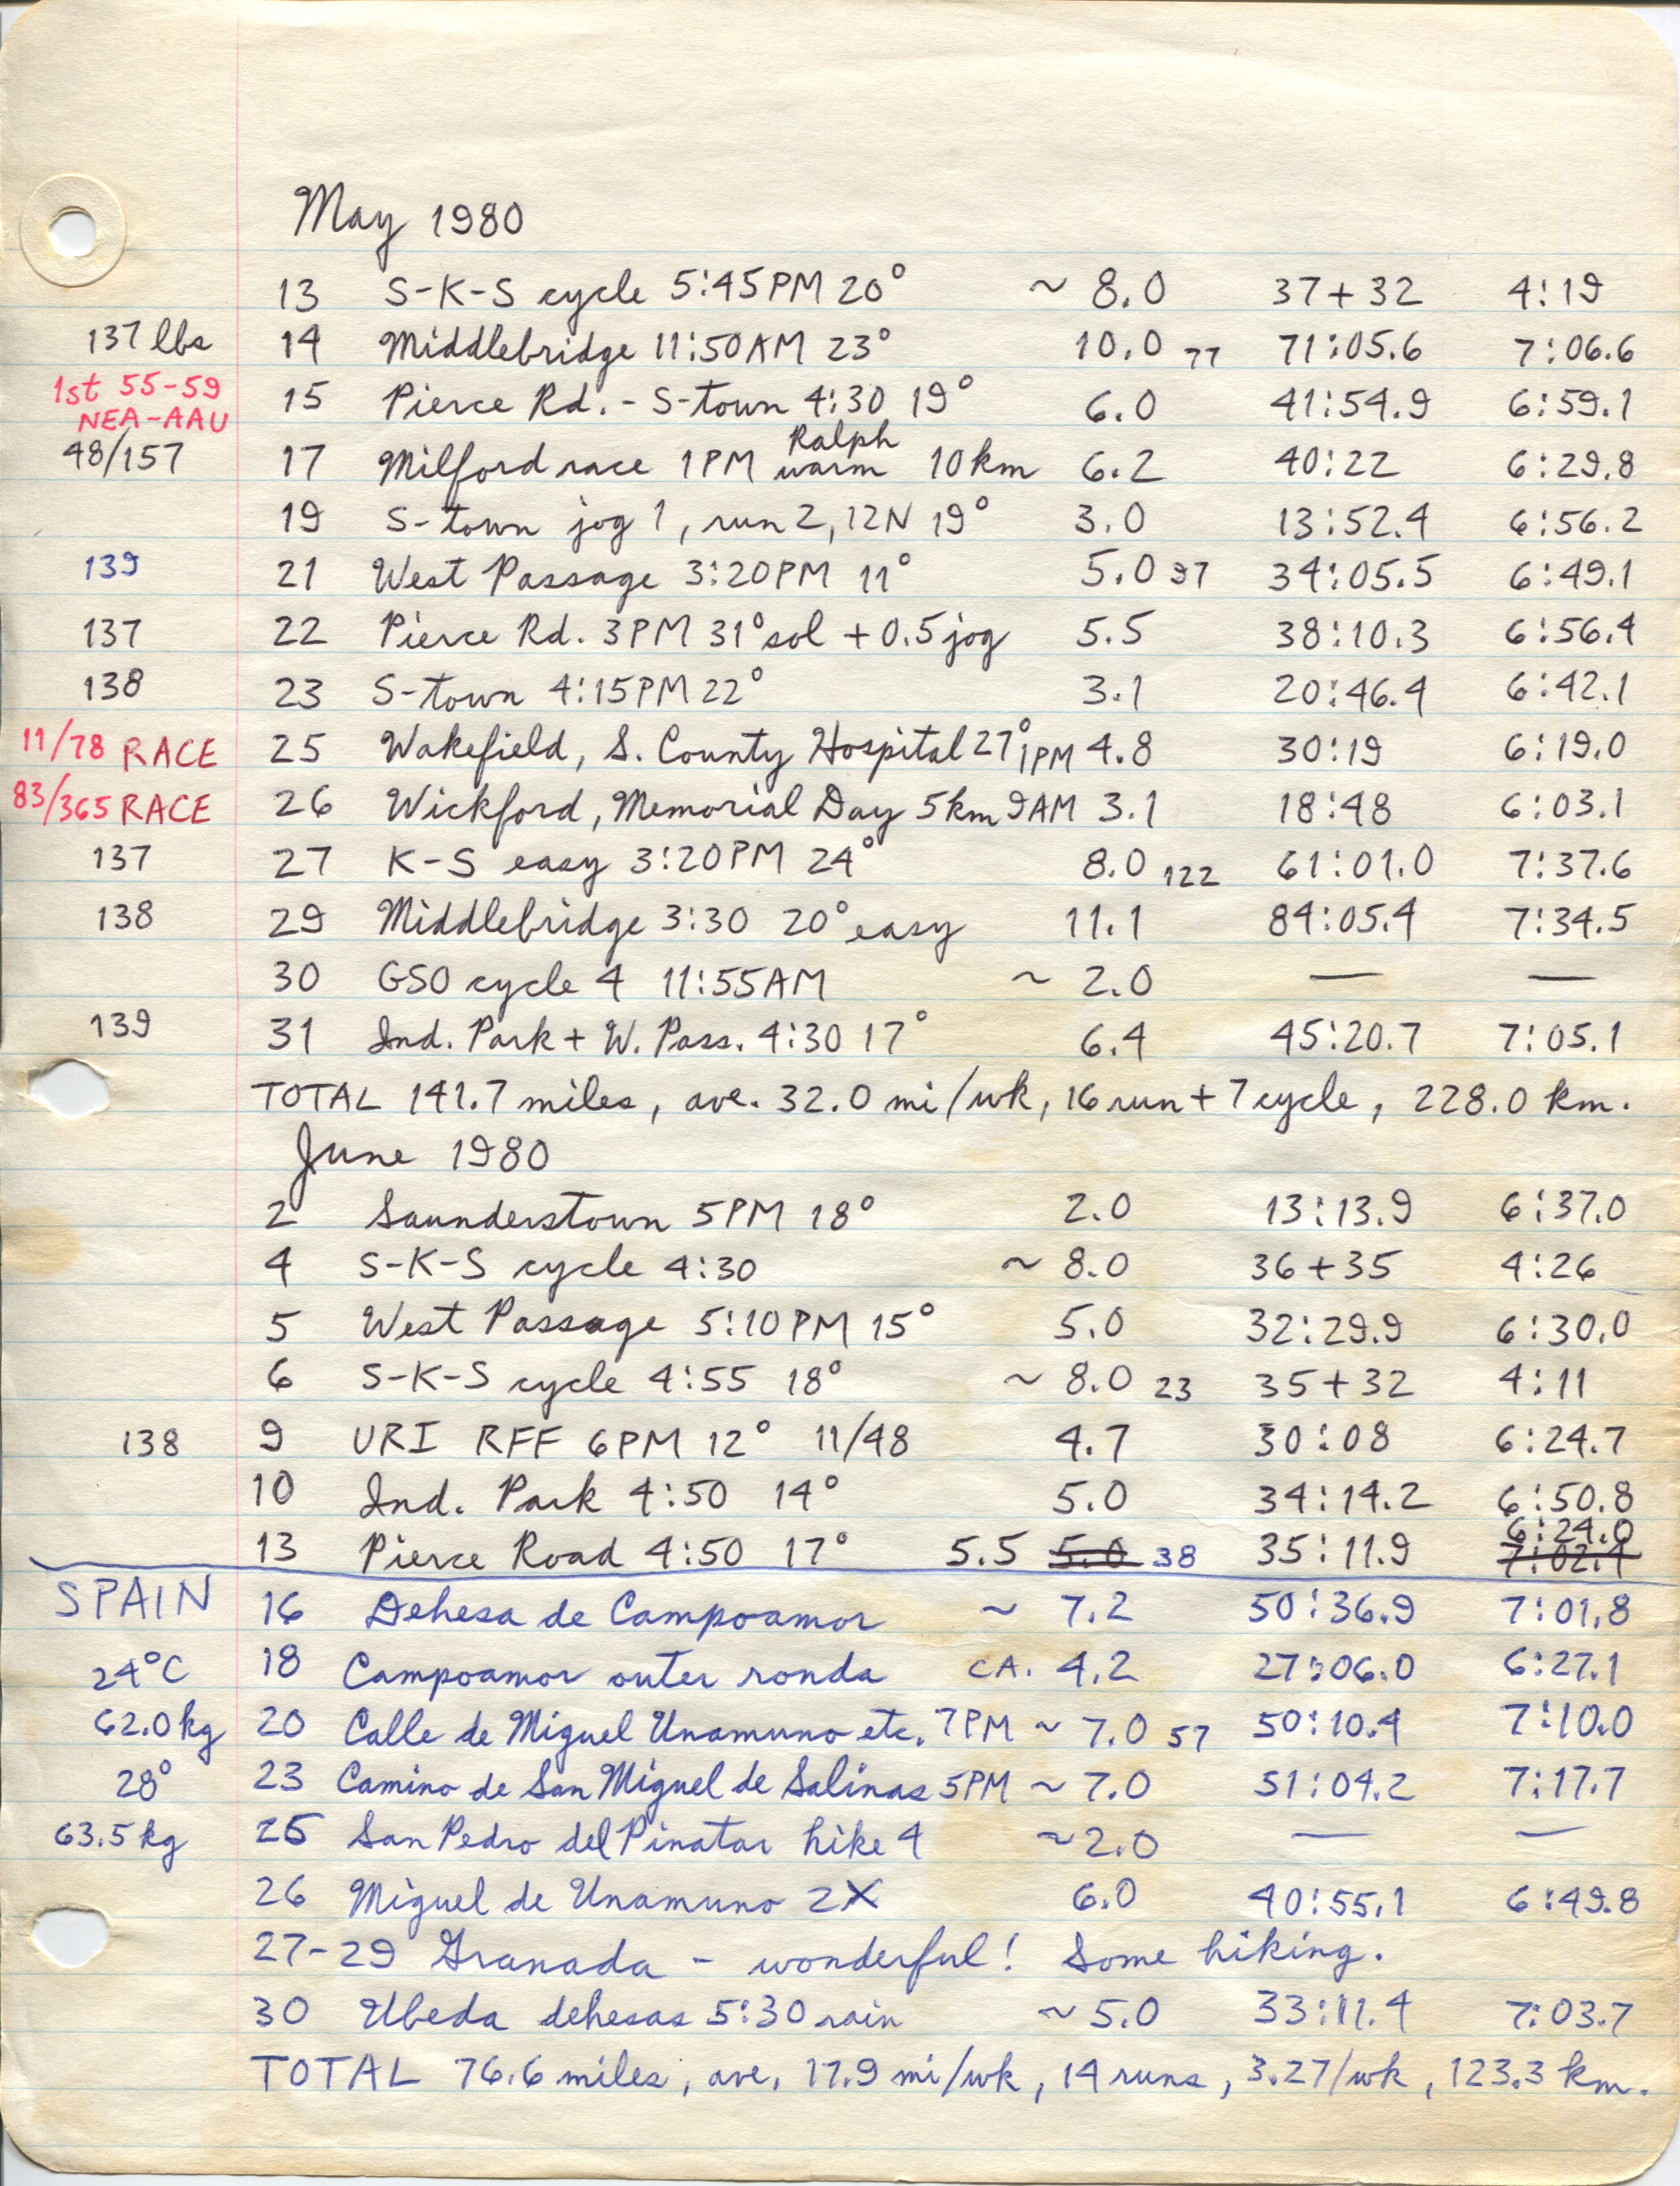 May 1980
13 S-K-S cycle 5:45PM 20° ~ 8.0 37+32 4:19
137 lbs 14 Middlebridge 11:50AM 23° 10.0 77 71:05.6 7:06.6
1st 55-59
NEA-AAU
15 Pierce Rd. - S-town 4:30 19° 6.0 41:54.9 6:59.1
48/157 17 Milford race 1PM Ralph warm 10km 6.2 40:22 6:29.8
19 S-town jog 1, run 2, 12N 19° 3.0 13:52.4 6:56.2
139 21 West Passage 3:20PM 11° 5.0 97 34:05.5 6:49.1
137 22 Pierce Rd. 3PM 31° sol + 0.5 jog 5.5 38:10.3 6:56.4
138 23 S-town 4:15PM 22° 3.1 20:46.4 6:42.1
11/78 RACE 25 Wakefield, S. County Hospital 27° 1PM 4.8 30:19 6:19.0
83/365 RACE 26 Wickford, Memorial Day 5km 9AM 3.1 18:48 6:03.1
137 27 K-S easy 3:20PM 24° 8.0 122 61:01.0 7:37.6
138 29 Middlebridge 3:30 20° easy 11.1 84:05.4 7:34.5
30 GSO cycle 4 11:55AM ~ 2.0 — —
139 31 Ind. Park + W. Pass. 4:30 17° 6.4 45:20.7 7:05.1
TOTAL 141.7 miles, ave. 32.0 mi/wk, 16 run + 7 cycle, 228.0 km.
June 1980
2 Saunderstown 5PM 18° 2.0 13:13.9 6:37.0
4 S-K-S cycle 4:30 ~ 8.0 36+35 4:26
5 West Passage 5:10PM 15° 5.0 32:29.9 6:30.0
6 S-K-S cycle 4:55 18° ~ 8.0 23 35+32 4:11
138 9 URI RFF 6PM 12° 11/48 4.7 30:08 6:24.7
10 Ind. Park 4:50 14° 5.0 34:14.2 6:50.8
13 Pierce Road 4:50 17° 5.5 5.0 38 35:11.9 6:24.0 7:02.4
SPAIN 16 Dehesa de Campoamor ~ 7.2 50:36.9 7:01.8
24°C 18 Campoamor outer ronda CA. 4.2 27:06.0 6:27.1
62.0 kg 20 Calle de Miguel Unamuno etc. 7PM ~ 7.0 57 50:10.4 7:10.0
28° 23 Camino de San Miguel de Salinas 5PM ~ 7.0 51:04.2 7:17.7
63.5 kg 25 San Pedro del Pinatar hike 4 ~2.0 — —
26 Miguel de Unamuno 2X 6.0 40:55.1 6:49.8
27-29 Granada - wonderful! Some hiking.
30 Ubeda dehesas 5:30 rain ~ 5.0 33:11.4 7:03.7
TOTAL 76.6 miles, ave. 17.9 mi/wk, 14 runs, 3.27/wk, 123.3 km.